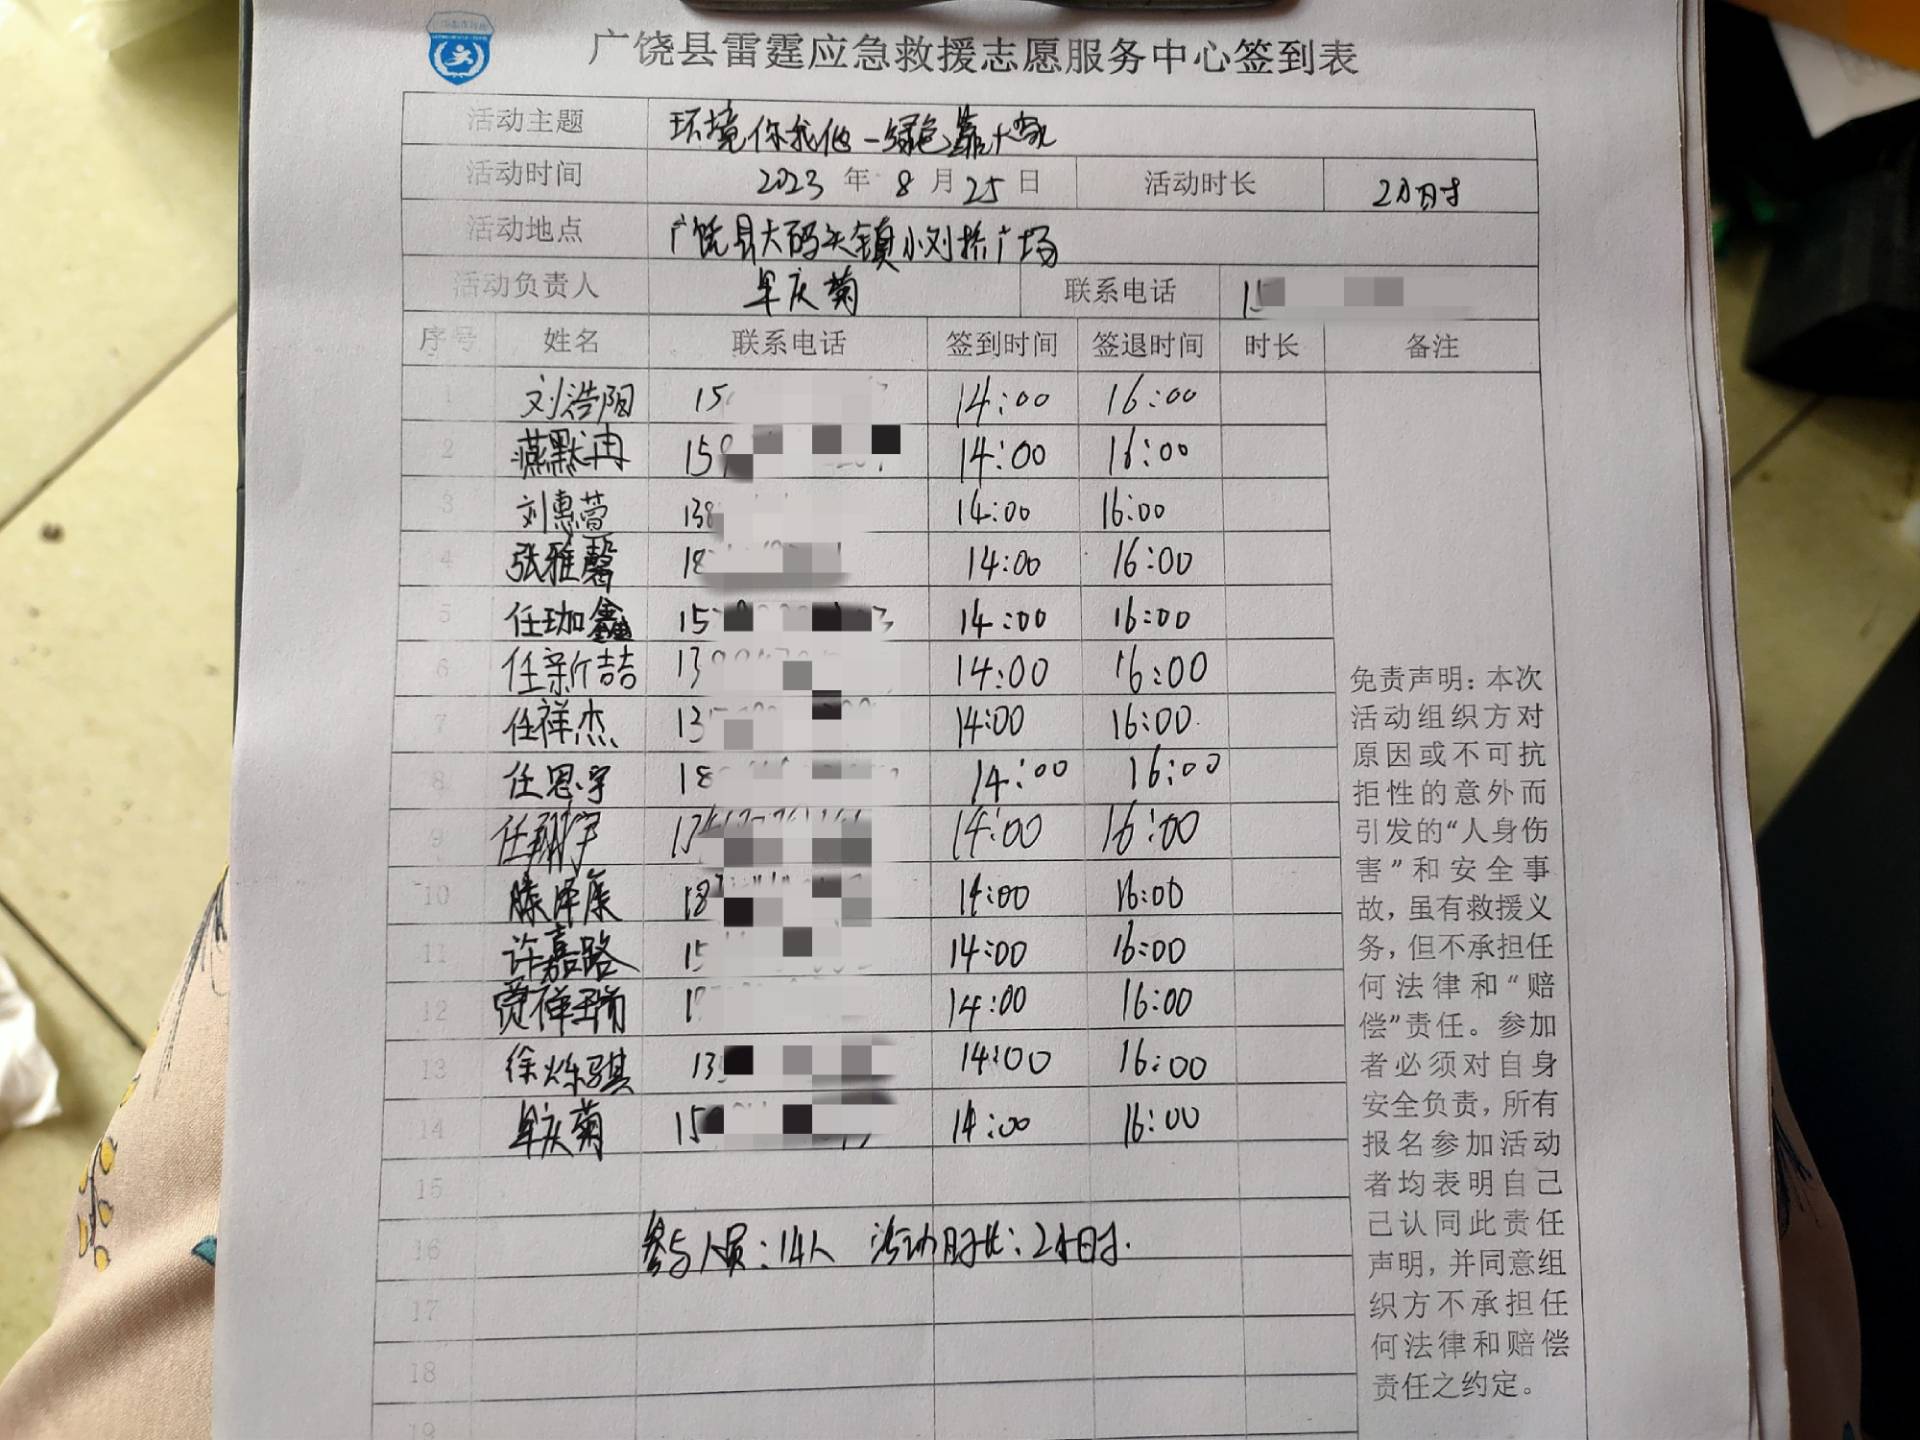 广饶县雷霆应急救援志愿服务中心签到表
活动主题 环境你我他一绿色靠大家
活动时间 2023年8月25日 活动时长 2小时
活动地点 广饶县大码头镇小刘桥广场
活动负责人 牟庆菊 联系电话 15
序号 姓名 联系电话 签到时间 签退时间 时长 备注
1 刘浩阳 15 14:00 16:00
2 燕默冉 159 14:00 16:00
3 刘惠萱 138 14:00 16:00
4 张雅馨 18 14:00 16:00
5 任珈鑫 15 14:00 16:00
6 任新喆 13 14:00 16:00
7 任祥杰 13 14:00 16:00
8 任思宇 18 14:00 16:00
9 任翔宇 17 14:00 16:00
10 滕泽康 187 14:00 16:00
11 许嘉路 15 14:00 16:00
12 贾祥瑞 1 14:00 16:00
13 徐烁骐 13 14:00 16:00
14 牟庆菊 15 14:00 16:00
15
16 参与人员：14人 活动时长：2小时.
17
18
19
免责声明：本次
活动组织方对
原因或不可抗
拒性的意外而
引发的“人身伤
害”和安全事
故，虽有救援义
务，但不承担任
何法律和“赔
偿”责任。参加
者必须对自身
安全负责，所有
报名参加活动
者均表明自己
己认同此责任
声明，并同意组
织方不承担任
何法律和赔偿
责任之约定。